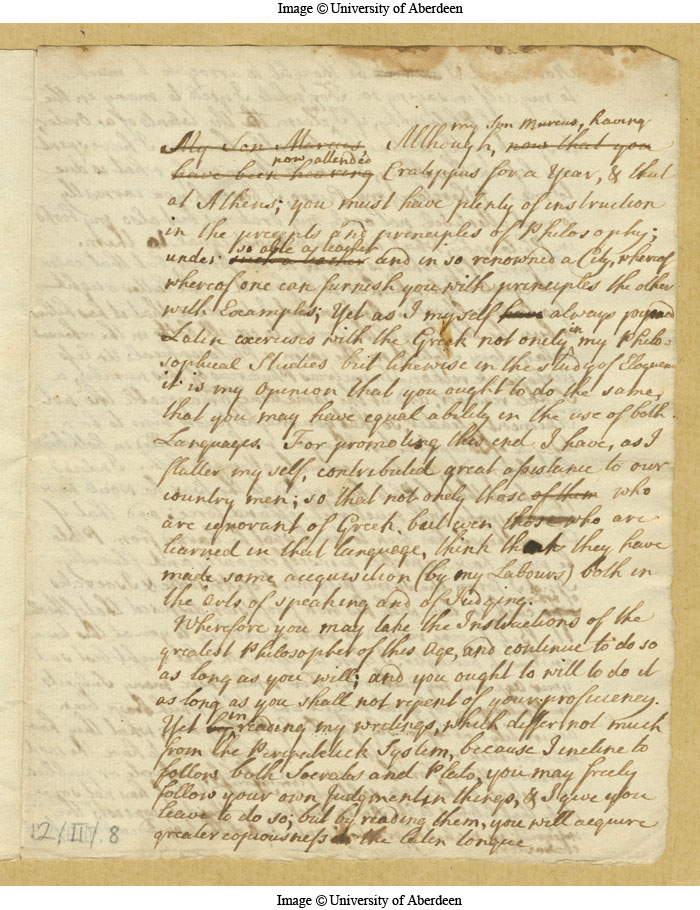 Image © University of Aberdeen
my Son Marcus, having
My Son Marcus, Although, now that you
now attended
have been hearing Cratippus for a Year, & that
at Athens; you must have plenty of instruction
in the precepts and principles of Philosophy;
so able a teacher
under such a teacher and in so renowned a City, whereof
whereof one can furnish you with principles the other
with Examples; Yet as I myself have always joyned
Latin exercises with the Greek not onely in my Philo-
sophical Studies but likewise in the study of Eloquen
it is my Opinion that you ought to do the same,
that you may have equal ability in the use of both
Languages. For promoting this end I have, as I
flatter my self, contributed great assistance to our
country men; so that not onely those of them who
are ignorant of Greek, but even those who are
learned in that language, think they have
made some acquisition (by my Labours) both in
the arts of speaking and of Judging.
Wherefore you may take the Instructions of the
greatest Philosopher of this Age, and continue to do so
as long as you will; and you ought to will to do it
as long as you shall not repent of your proficiency.
Yet in reading my writings, which differ not much
from the Peripatetick System, because I incline to
follow both Socrates and Plato, you may freely
follow your own Judgment in things, & I give you
leave to do so; but by reading them, you will acquire
greater copiousness in the latin tongue
12/III/8
Image © University of Aberdeen